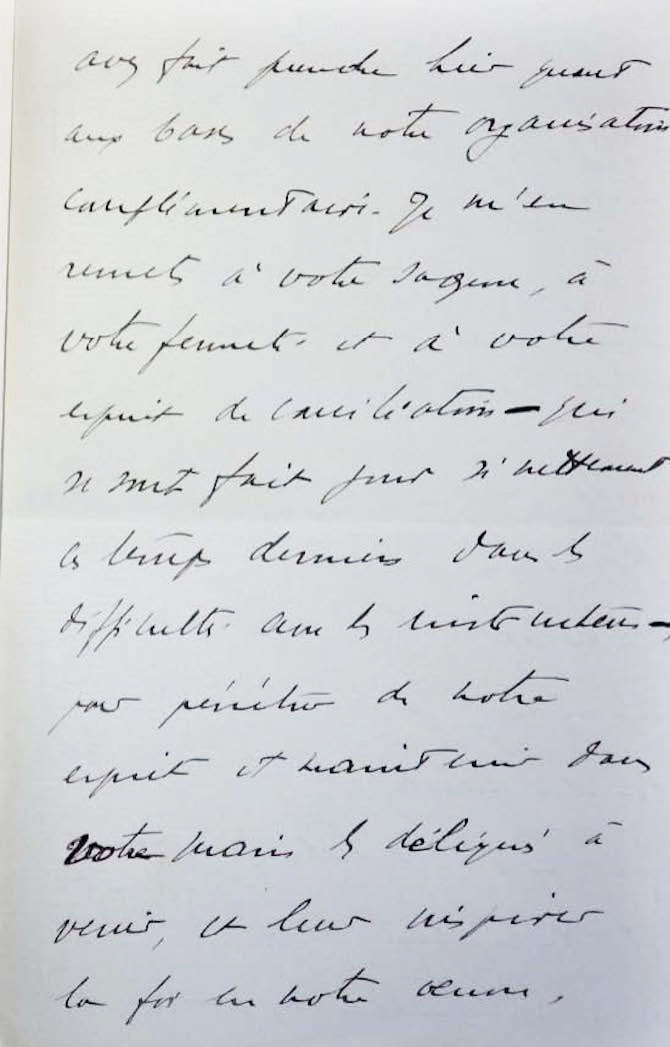 avez fait prendre hier quant
aux bases de notre organisation
complémentaire. Je m'en
remets à votre sagesse, à
votre fermeté et à votre
esprit de conciliation — qui
se sont fait jour si nettement
ces temps derniers dans les
difficultés avec les instructeurs —
pour pénétrer de notre
esprit et maintenir dans
votre main les délégués à
venir, et leur inspirer
la foi en notre œuvre,